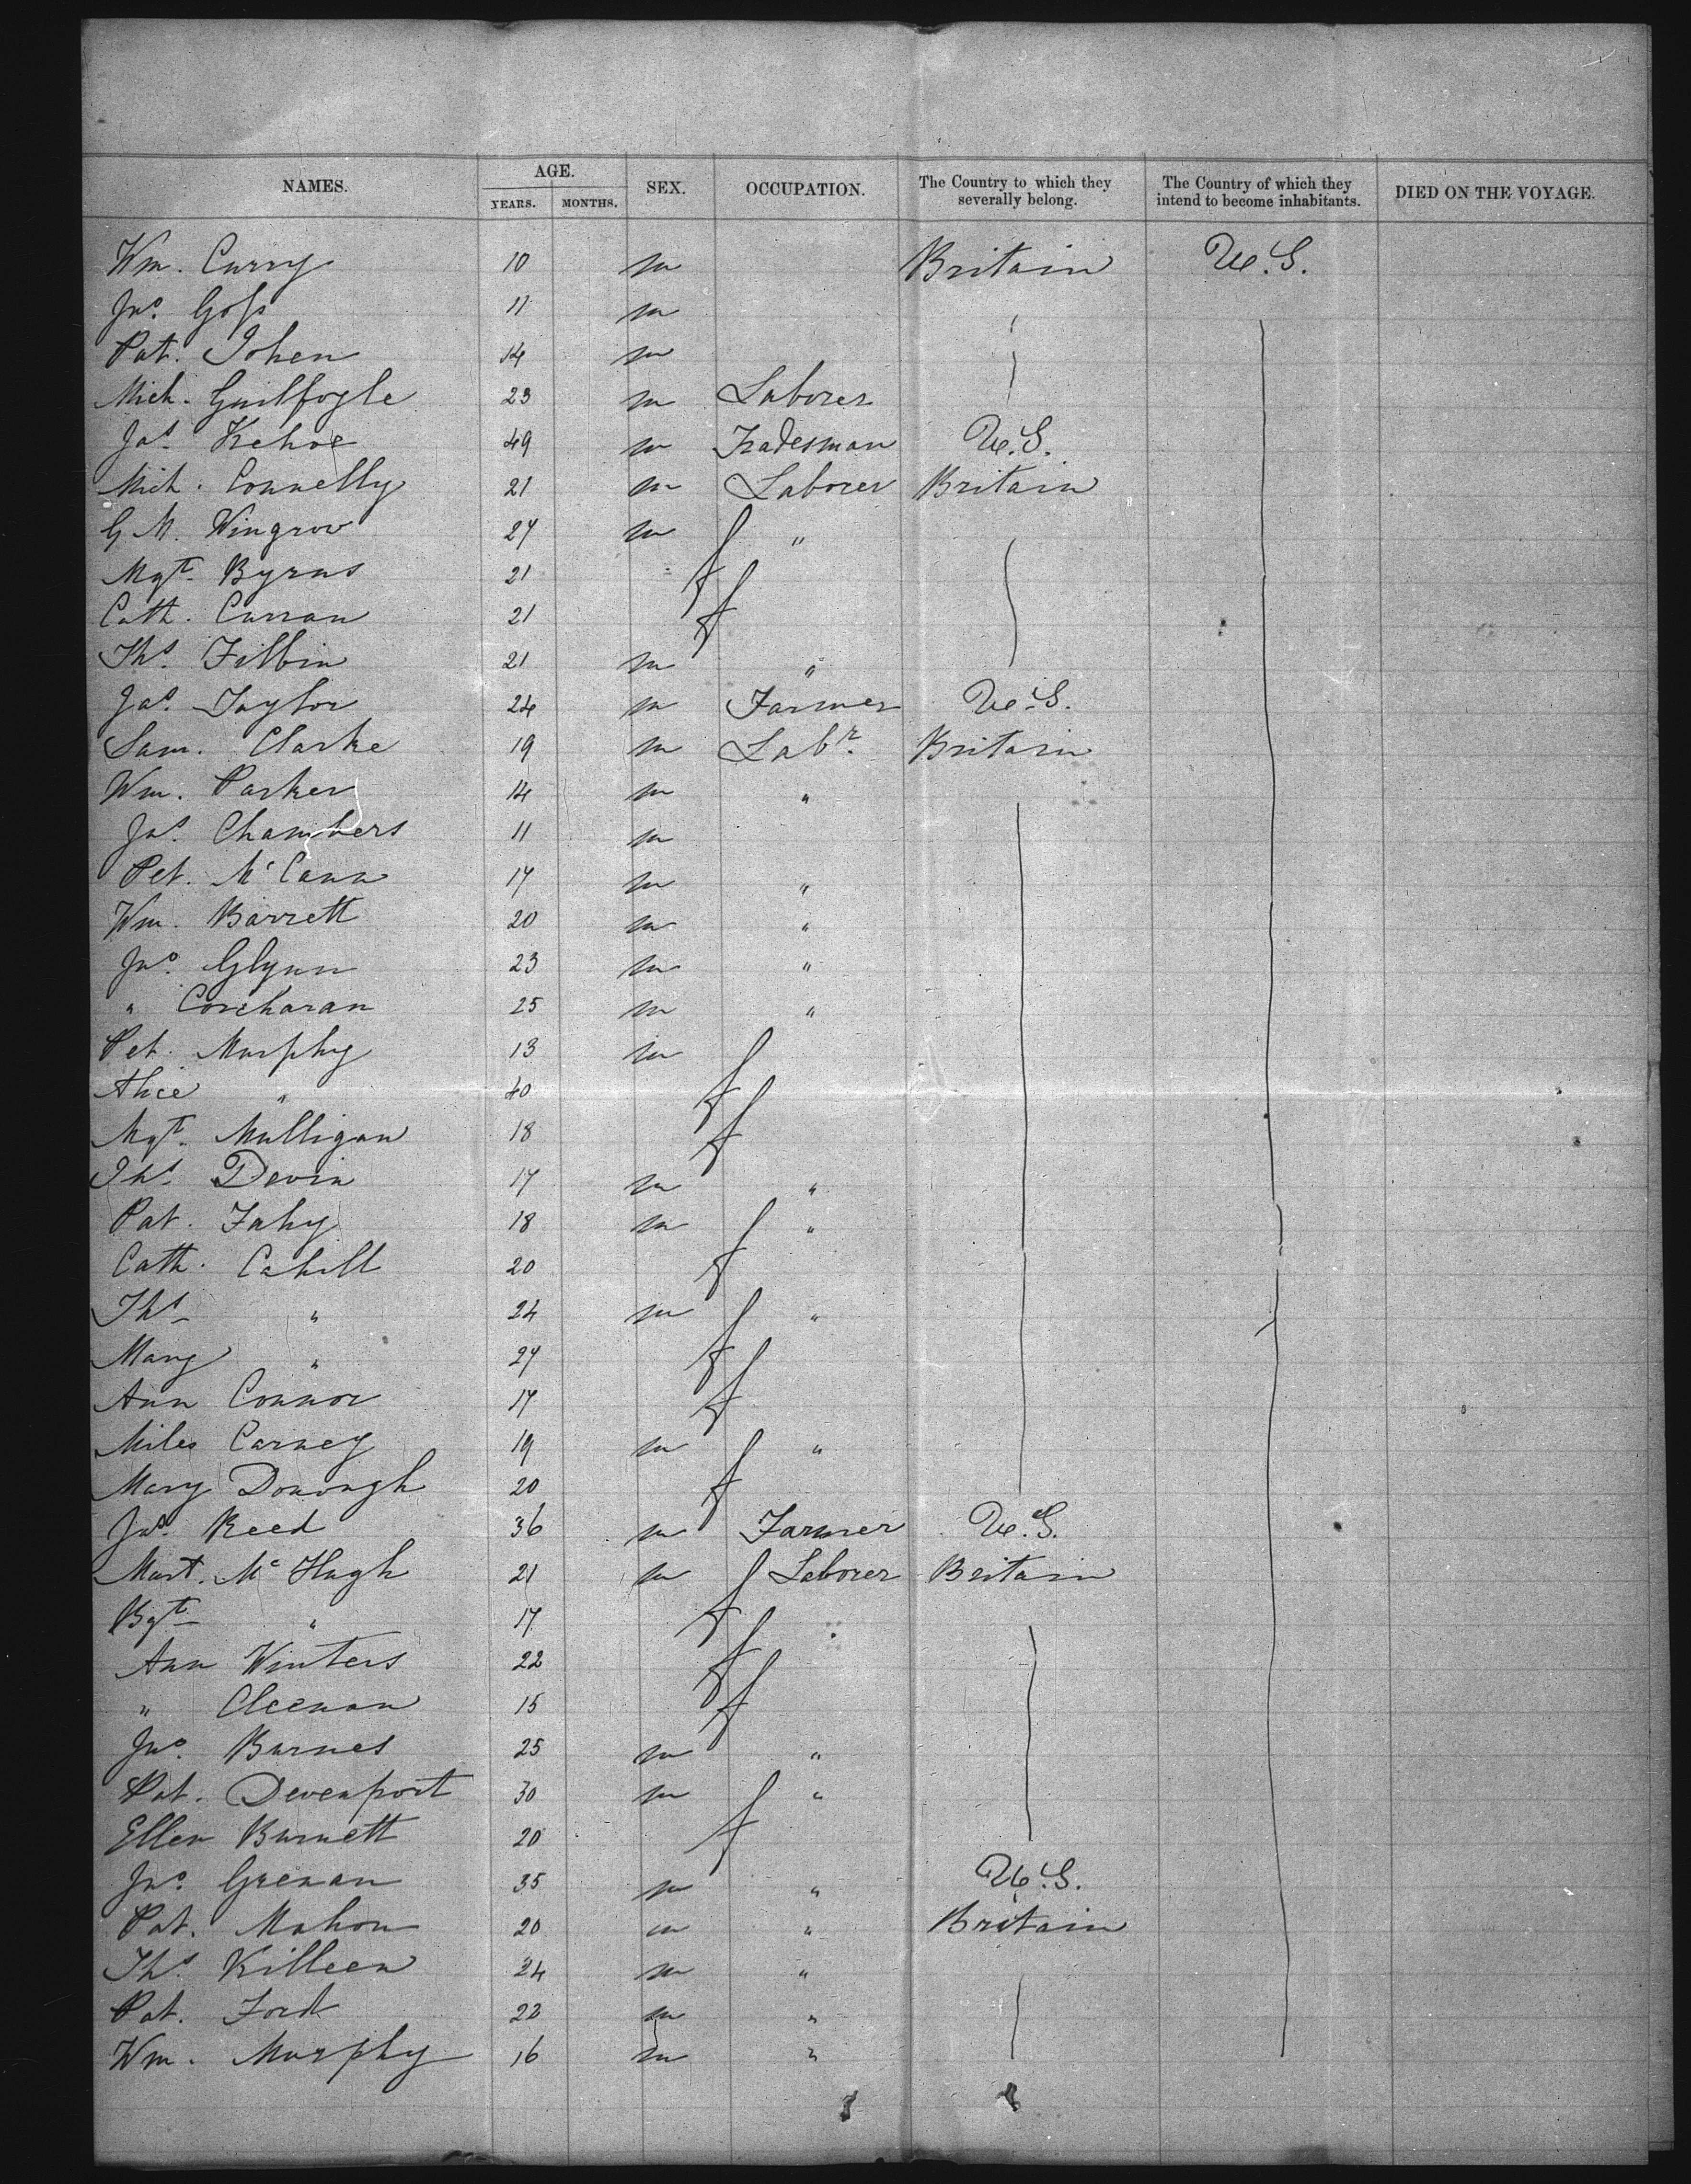 NAMES. AGE. YEARS. MONTHS. SEX. OCCUPATION. The Country to which they severally belong. The Country of which they intend to become inhabitants. DIED ON THE VOYAGE.
Wm. Curry 10 m Britain U.S.
Jno. Goss 11 m
Pat. Cohen 14 m
Mich. Guilfoyle 23 m Laborer
Jas. Kehoe 49 m Tradesman U.S.
Mich. Connelly 21 m Laborer Britain
G M. Wingrov 27 m "
Mgt. Byrns 21 f
Cath. Curran 21 f
Ths. Filbin 21 m "
Jas. Taylor 24 m Farmer U.S.
Sam. Clarke 19 m Labr. Britain
Wm. Parker 14 m "
Jas. Chambers 11 m
Pet. McCann 17 m "
Wm. Barrett 20 m "
Jno. Glynn 23 m "
" Corcharan 25 m "
Pet. Murphy 13 m
Alice " 40 f
Mgt. Mulligan 18 f
Ths. Devin 17 m "
Pat. Fahy 18 m "
Cath. Cahill 20 f
Ths. " 24 m "
Mary " 27 f
Ann Connor 17 f
Miles Carney 19 m "
Mary Donough 20 f
Jno. Reed 36 m Farmer U.S.
Mart. Mc Hugh 21 m Laborer Britain
Bgt " 17 f
Ann Winters 22 f
" Cleenan 15 f
Jno. Burnes 25 m "
Pat. Devenport 30 m "
Ellen Burnett 20 f
Jno. Grenan 35 m " U.S.
Pat. Mahon 20 m " Britain
Ths. Killeen 24 m "
Pat. Ford 22 m "
Wm. Murphy 16 m "